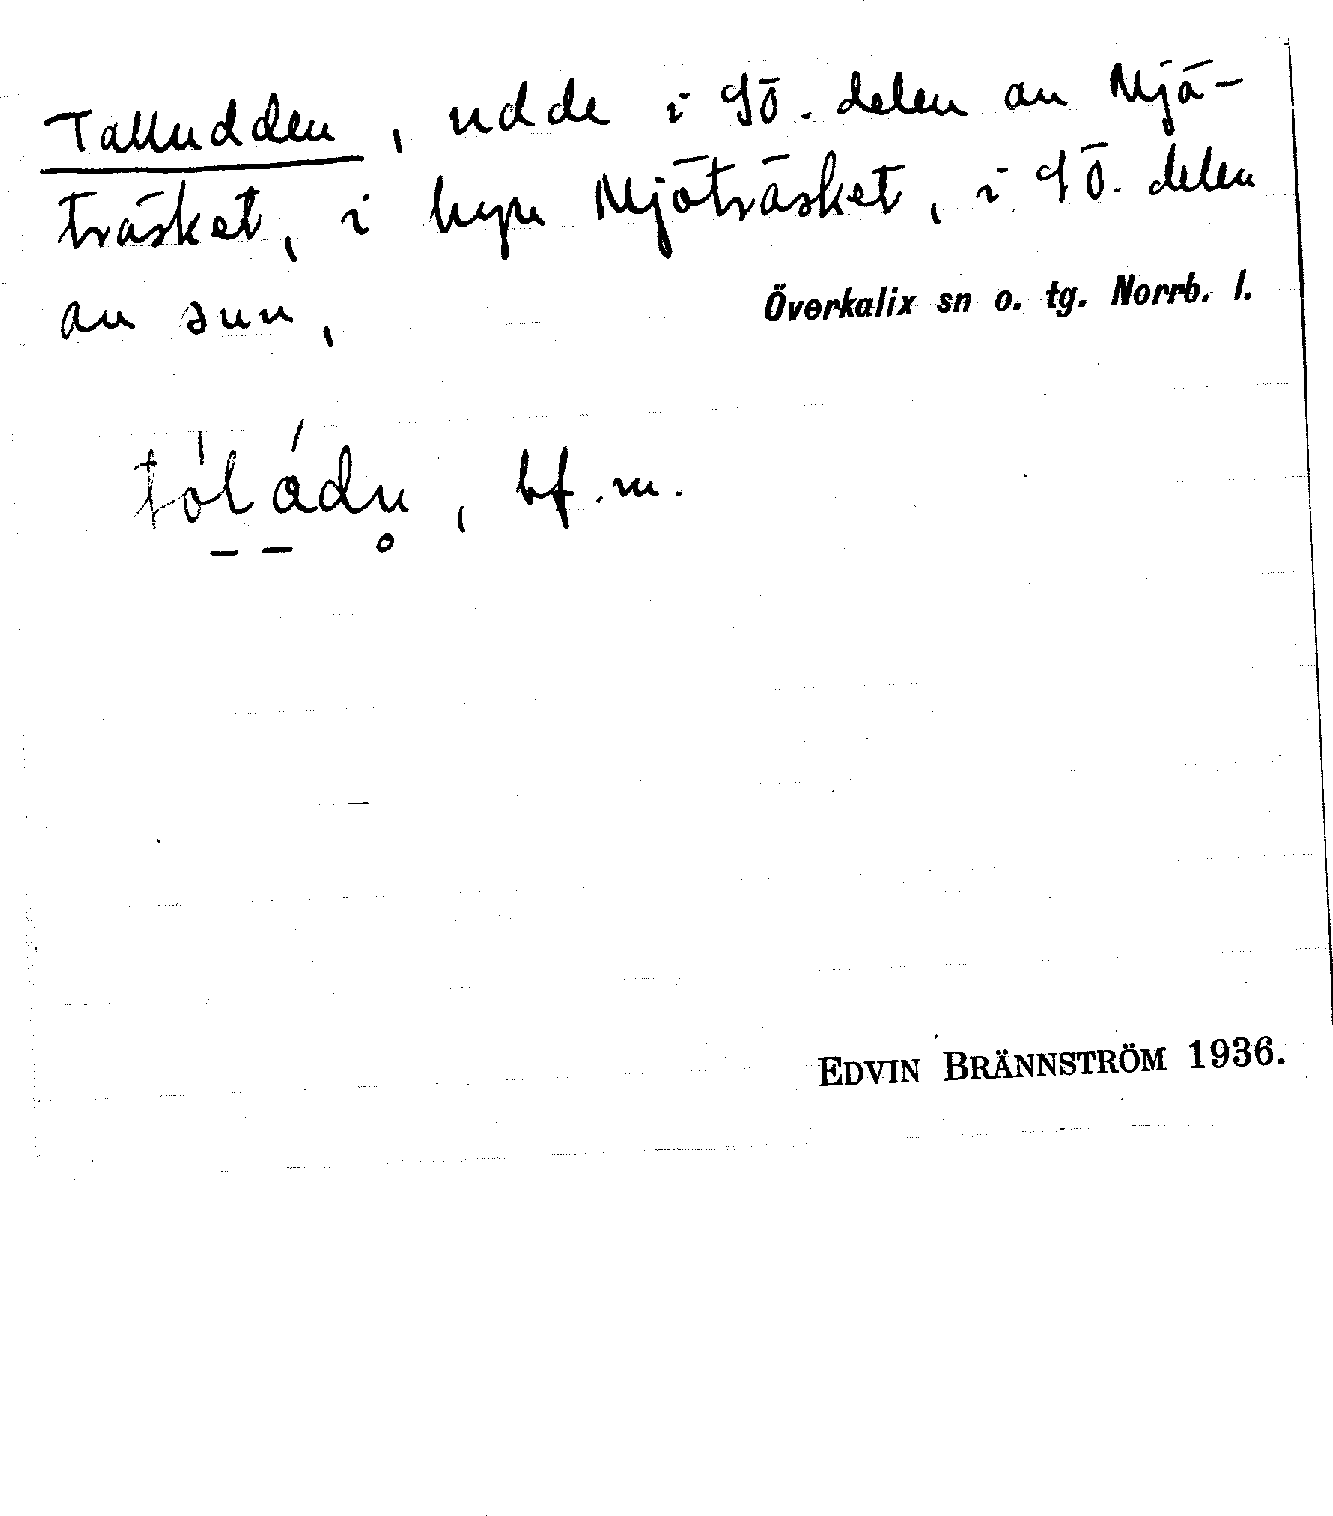 Talludden, udde i SÖ. delen av Mjö-
träsket, i byn Mjöträsket, i SÖ. delen
av snn,
Överkalix sn o. tg. Norrb. l.
bf. m.
EDVIN BRÄNNSTRÖM 1936.